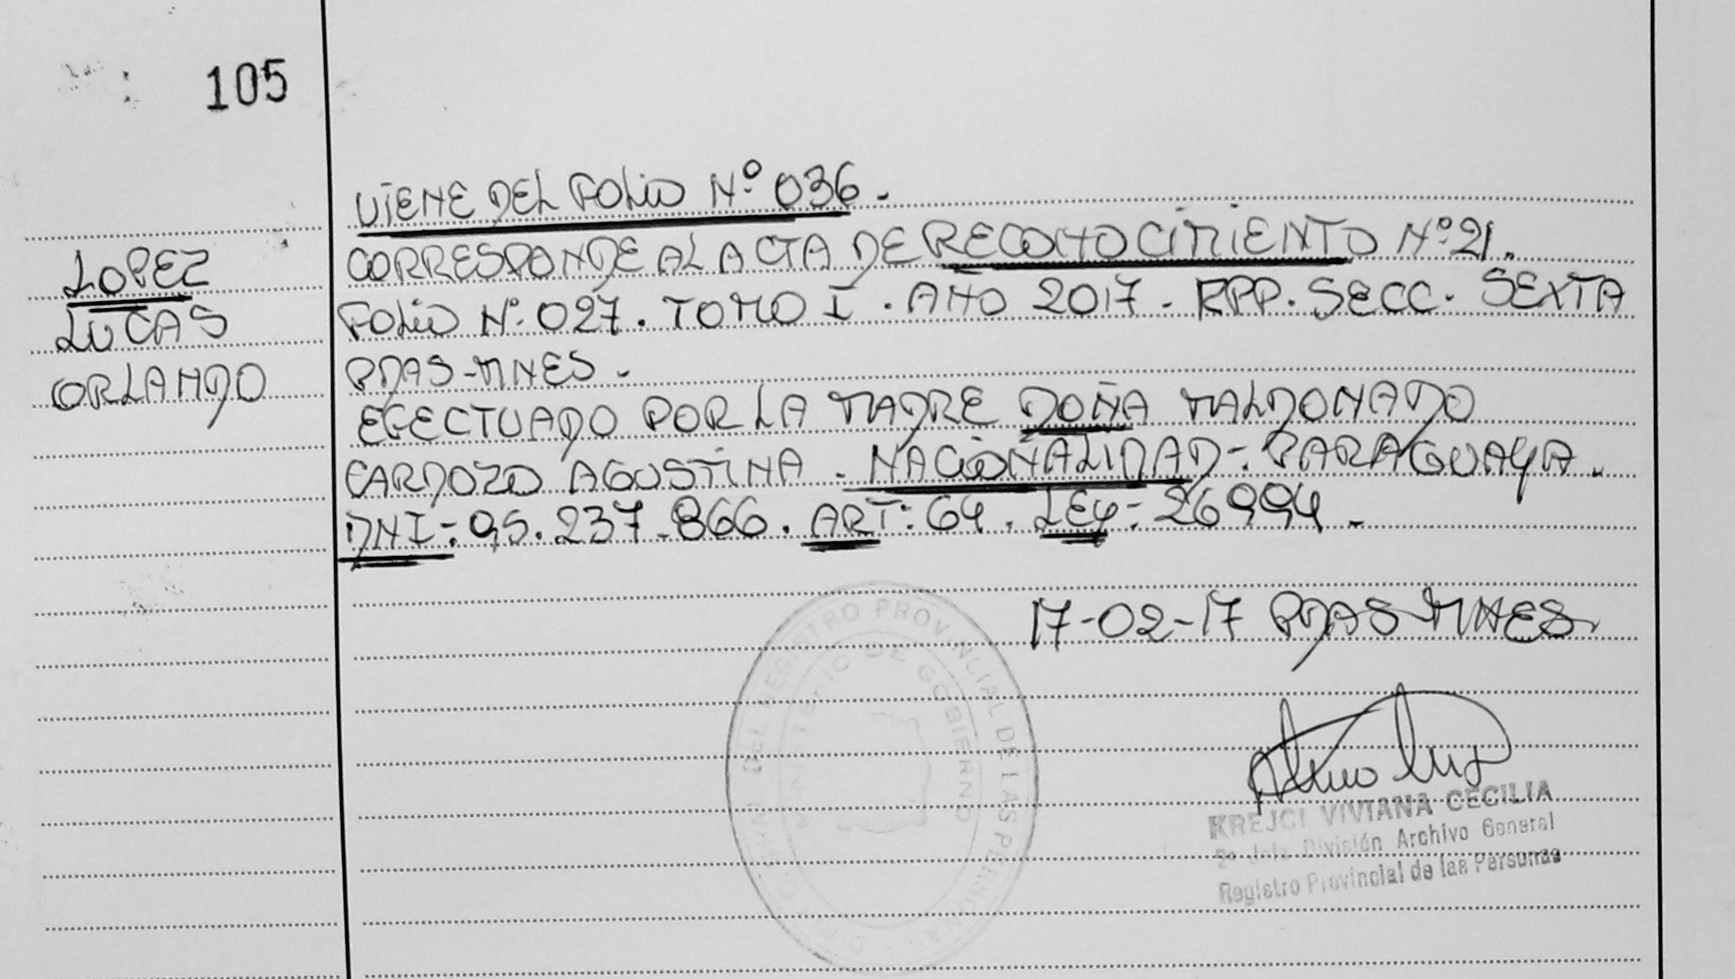 105
LOPEZ
LUCAS
ORLANDO
VIENE DEL FOLIO Nº 036.
CORRESPONDE AL ACTA DE RECONOCIMIENTO Nº 21.
FOLIO Nº 027. TOMO I. AÑO 2017. RPP. SECC. SEXTA
PDAS-MNES.
EFECTUADO POR LA MADRE DOÑA MALDONADO
CARDOZO AGUSTINA. NACIONALIDAD: PARAGUAYA.
DNI: 95.237.866. ART: 64. LEY: 26994.
17-02-17 PDAS MNES
KREJCI VIVIANA CECILIA
2º Jefa División Archivo General
Registro Provincial de las Personas
DEL REGISTRO PROVINCIAL DE LAS PERSONAS
MINISTERIO DE GOBIERNO